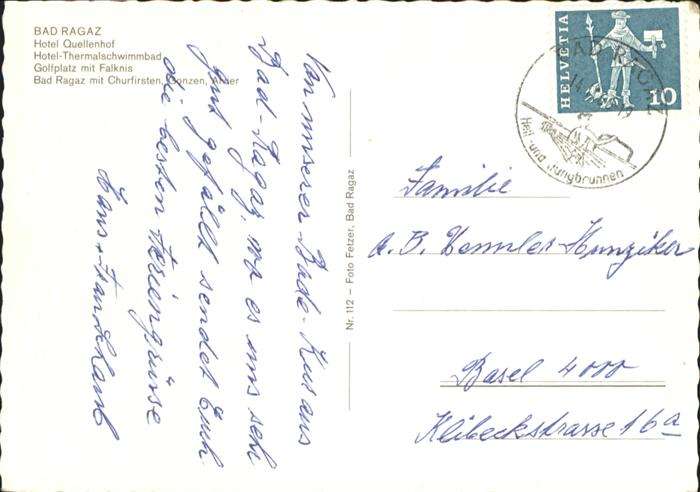 BAD RAGAZ
Hotel Quellenhof
Hotel-Thermalschwimmbad
Golfplatz mit Falknis
Bad Ragaz mit Churfirsten, Gonzen, Alvier
Von unserer Bade-Kur aus
Bad-Ragaz, wo es uns sehr
gut gefällt sendet Euch
die besten Feriengrüsse
Hans +
Nr. 112 – Foto Fetzer, Bad Ragaz
HELVETIA
10
BAD RAGAZ
14
Heil- und Jungbrunnen
Familie
A. B. Hunziker
Basel 4000
Klibeckstrasse 16a